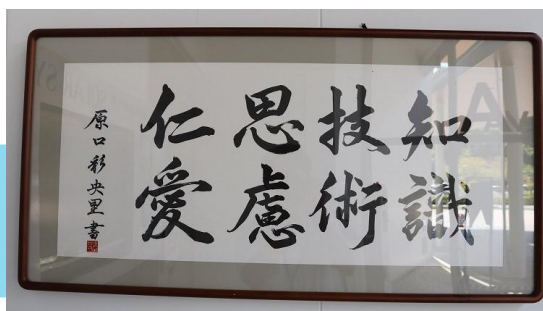 知識
技術
思慮
仁愛
原口彩央里書